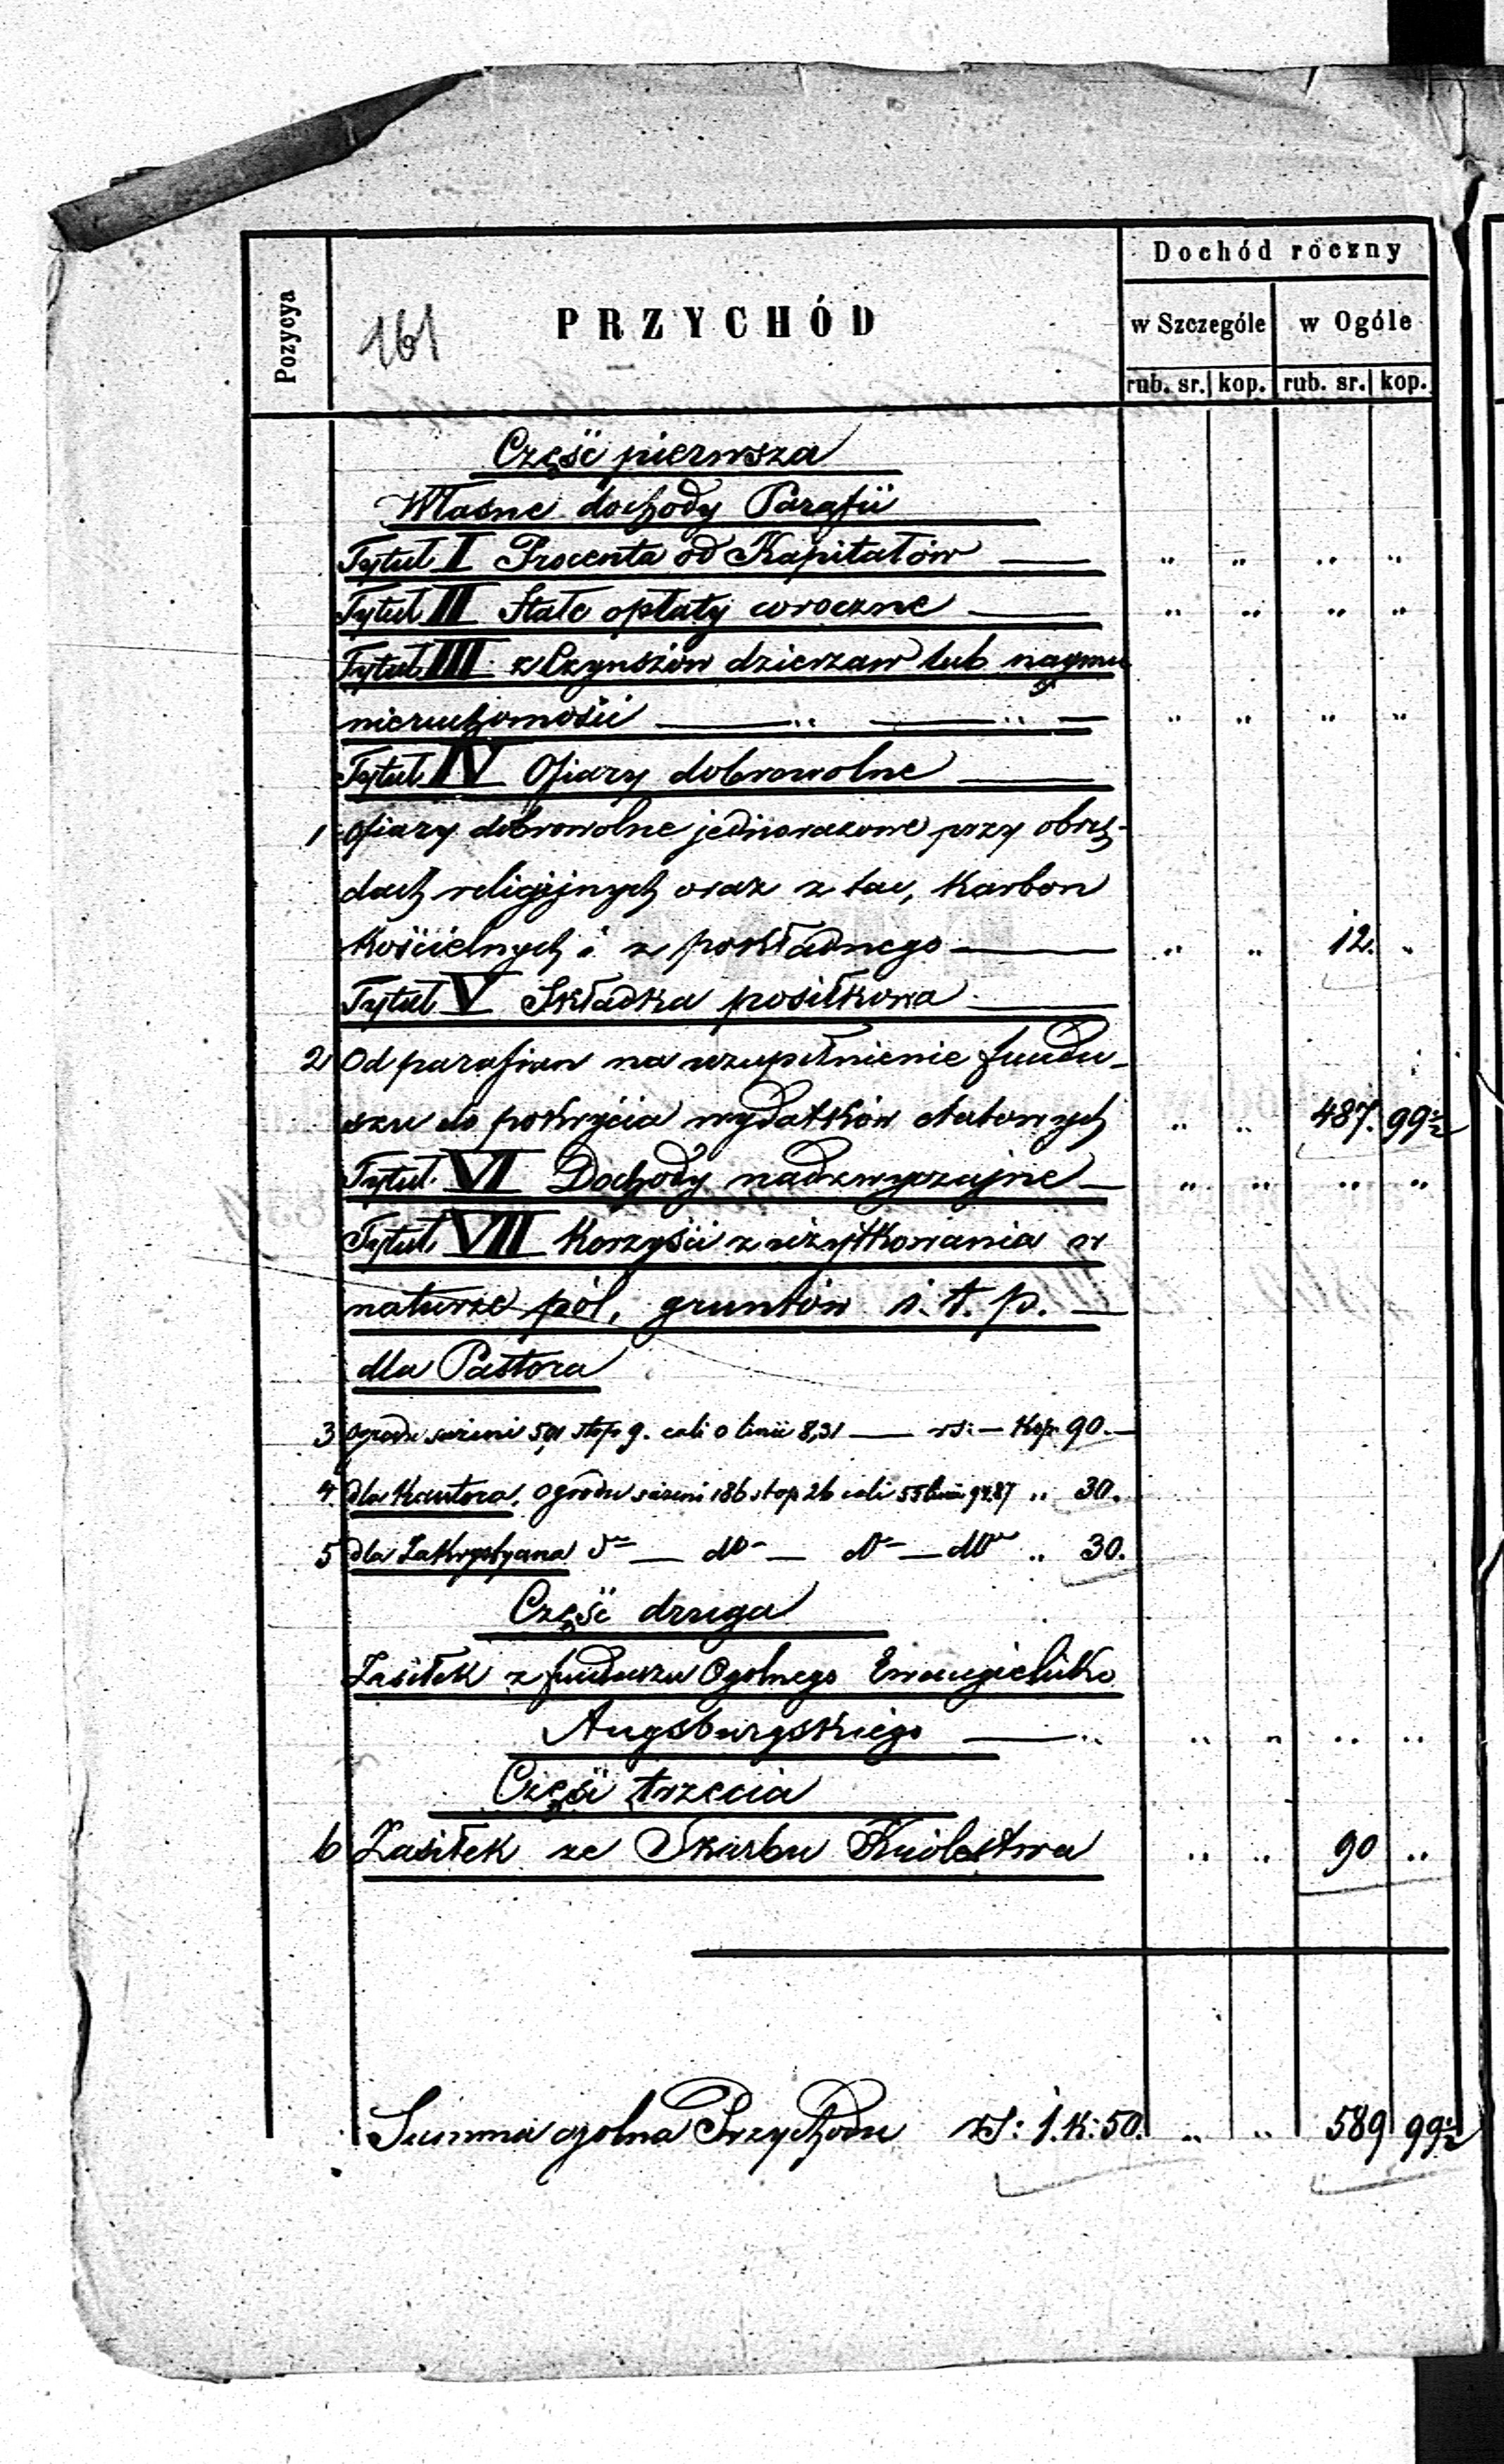 Dochód roczny
Pozycya
161
PRZYCHÓD
w Szczególe w Ogóle
rub. sr. kop. rub. sr. kop.
Część pierwsza
Własne dochody Parafii
Tytuł I Procenta od Kapitałów — „ „ „ „
Tytuł II Stałe opłaty coroczne — „ „ „ „
Tytuł III z Czynszów dzierzaw lub naymu
nieruchomości — „ — „ — „ „ „ „
Tytuł IV Ofiary dobrowolne —
1 Ofiary dobrowolne jednorazowe przy obrzę-
dach religijnych oraz z tac, Karbon
Kościelnych i z pokładnego — „ „ 12. „
Tytuł V Składka posiłkowa —
2 Od parafian na uzupełnienie fundu-
szu do pokrycia wydatków etatowych „ „ 487. 99½
Tytuł VI Dochody nadzwyczajne — „ „ „ „
Tytuł VII Korzyści z użytkowania w
naturze pól, gruntów i. t. p. —
dla Pastora
3 Ogrodu sążeni 591 stop 9. cali 0 linii 8,31 — rs: — Kop. 90. —
4 dla Kantora, Ogrodu sążeni 186 stop 26 cali 55 linii 94.87 „ 30.
5 dla Zakrystyana do — do — do — do „ 30.
Część druga
Zasiłek z funduszu Ogolnego Ewangielicko
Augsburgskiego — „ „ „ „ „
Część trzecia
6 Zasiłek ze Skarbu Królestwa „ „ 90 „
Summa ogolna Przychodu rs: 1. k: 50. „ „ 589 99½